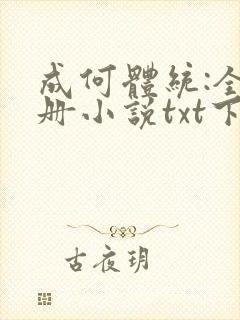 成何體統:全
册小説txt下
古夜玥